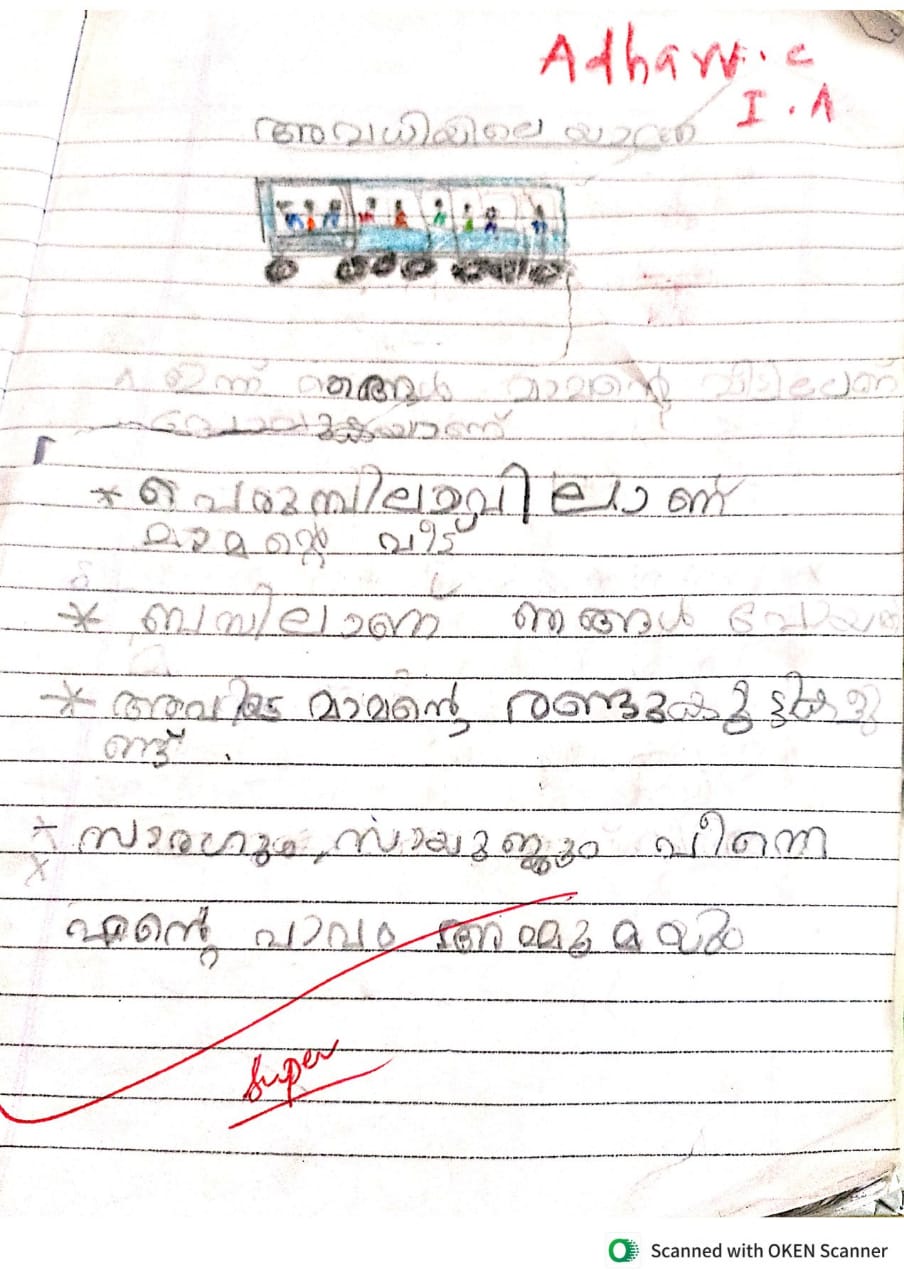 Adharv.c
I.A
അവധിയിലെ യാത്ര
ഇന്ന് ഞങ്ങൾ മാമന്റെ വീട്ടിലേണ്
പോവുകയാണ്
* പെരുമ്പിലാവിലാണ്
മാമന്റെ വീട്
* ബസിലാണ് ഞങ്ങൾ പോയത്
* അവിടെ മാമന്റെ രണ്ടുകുട്ടികളു
ണ്ട് .
* സാരഗും, സായൂജും പിന്നെ
എന്റെ പാവം അമ്മുമയും
Super
Scanned with OKEN Scanner